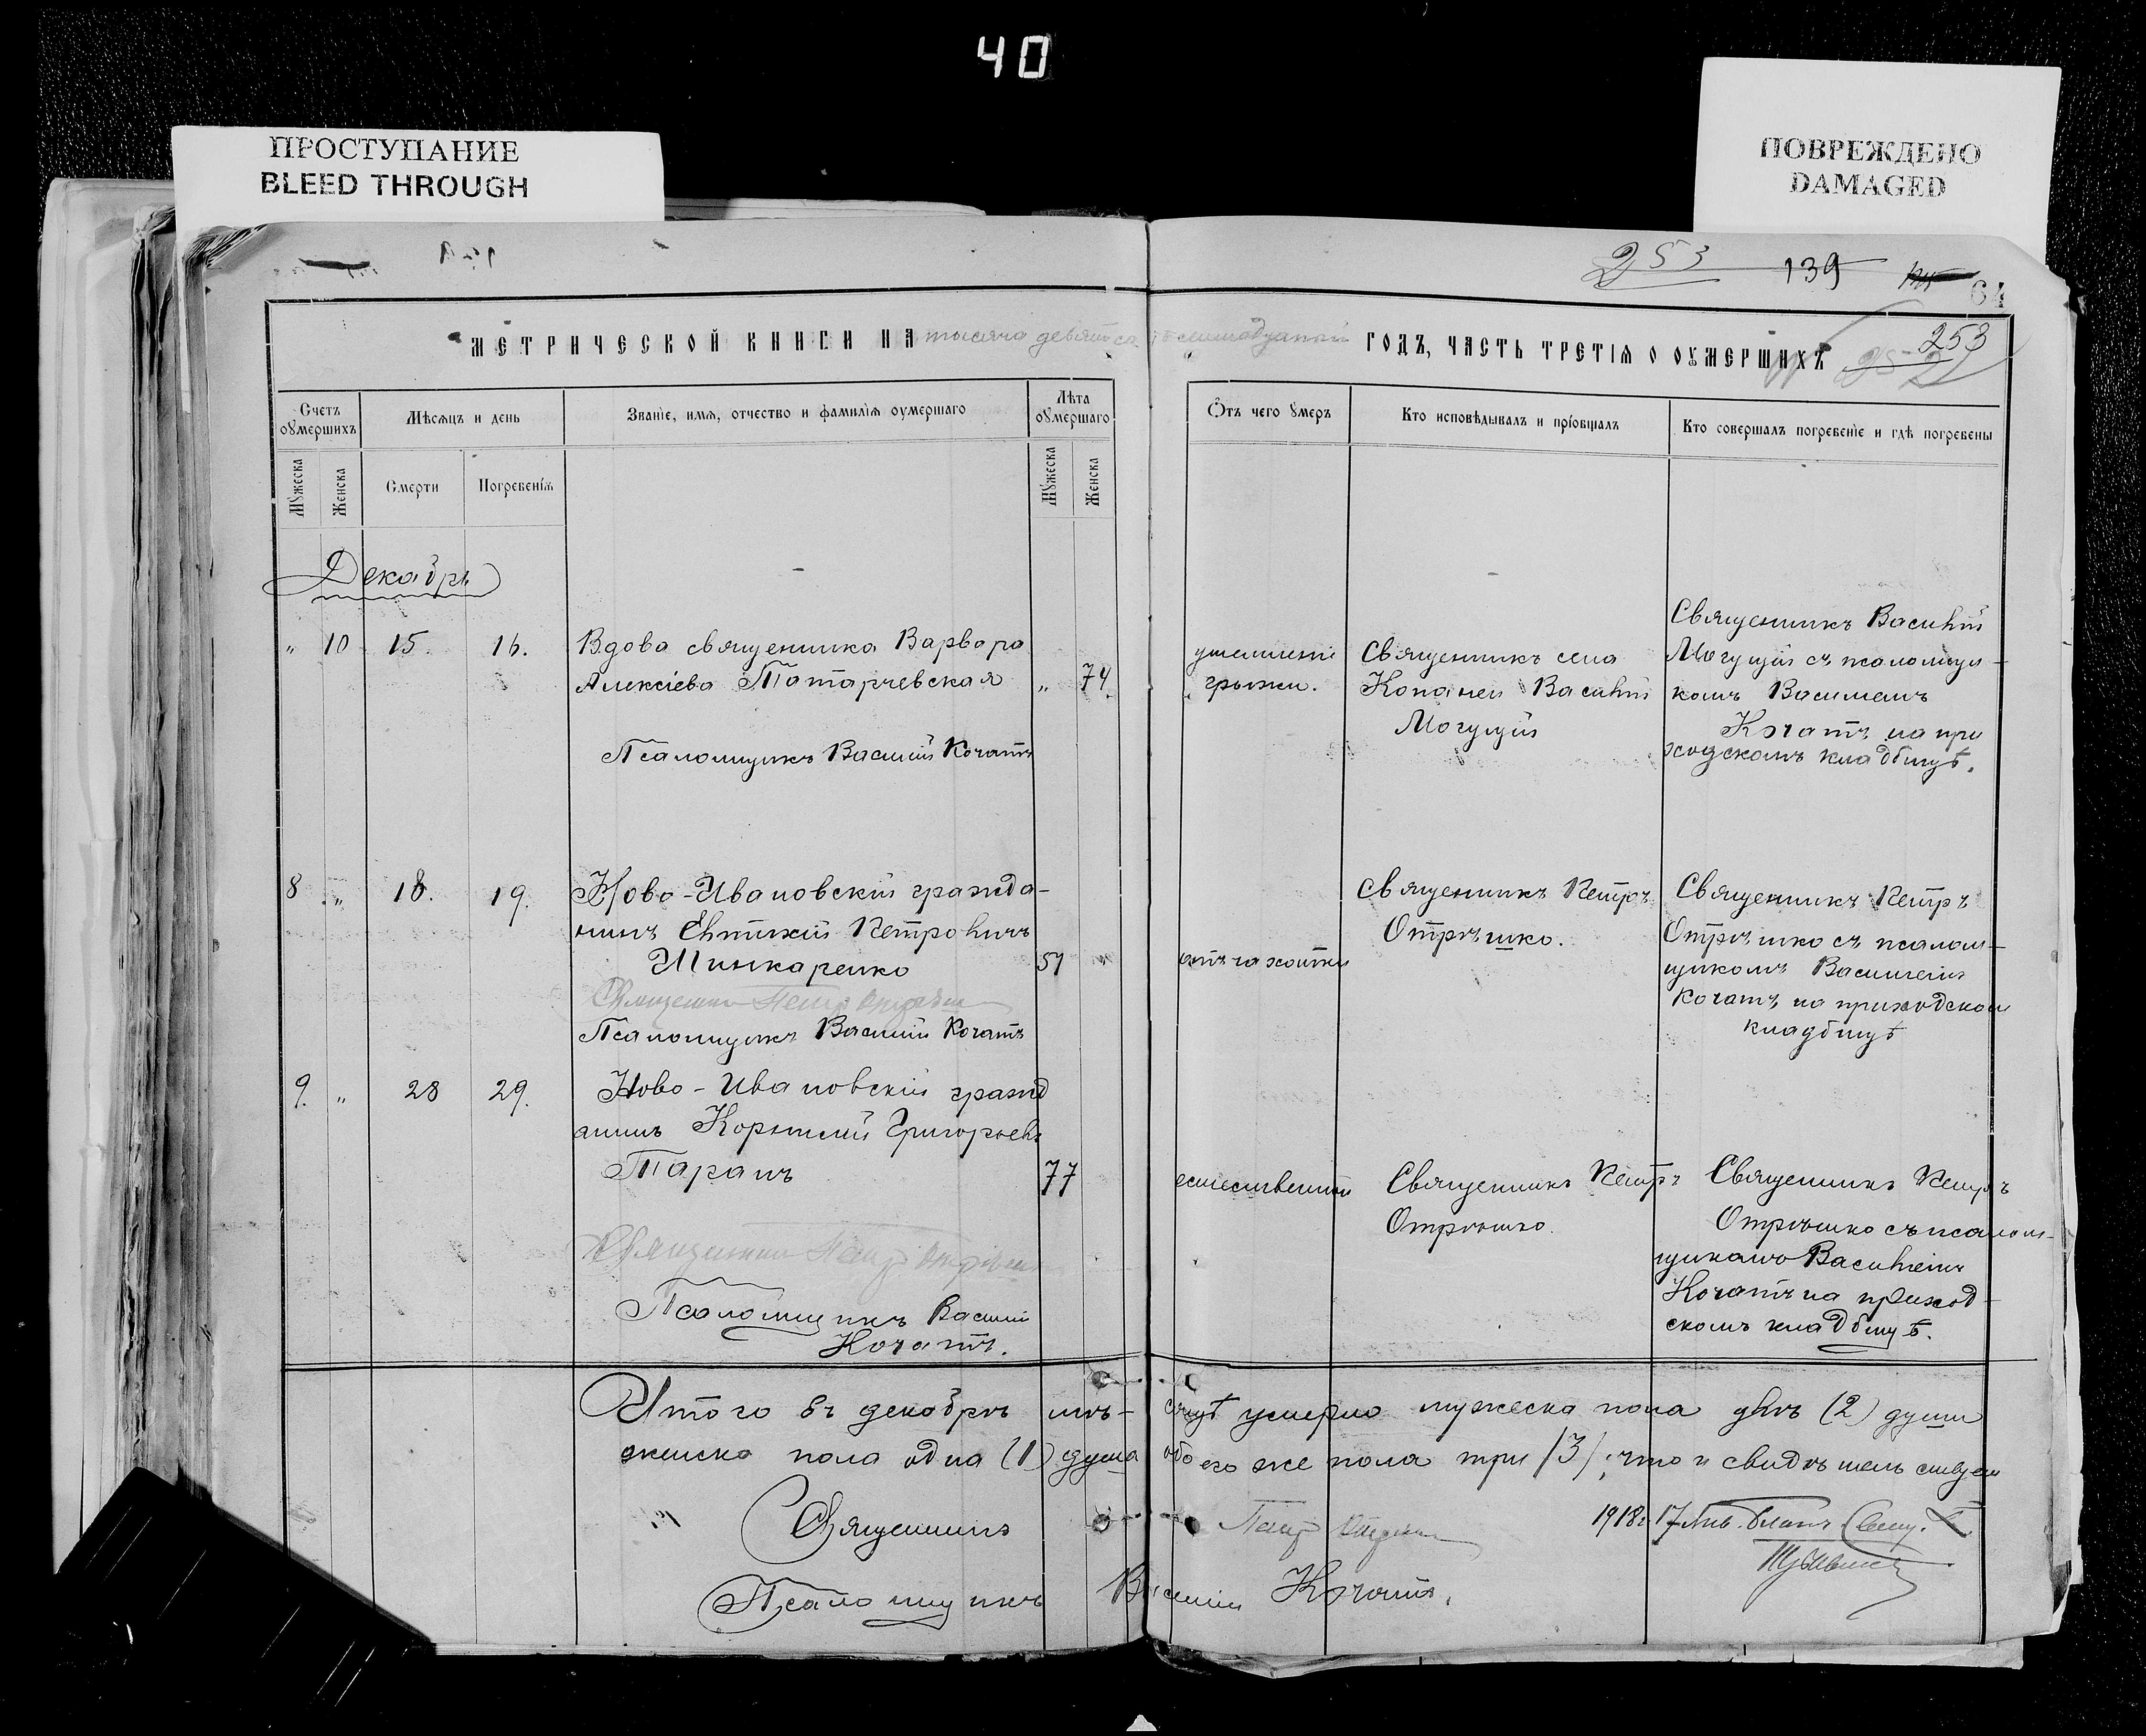 40
ПРОСТУПАНИЕ
BLEED THROUGH
ПОВРЕЖДЕНО
DAMAGED
253 139 64
МЕТРИЧЕСКОЙ КНИГИ НА тысяча девятьсотъ семнадцатый ГОДЪ, ЧАСТЬ ТРЕТІѦ О ОУМЕРШИХЪ 253
Счетъ оумершихъ
Мѣсѧцъ и день
Званіе, имѧ, отчество и фамиліѧ оумершаго
Лѣта оумершаго
Ѿтъ чего умеръ
Кто исповѣдывалъ и пріобщалъ
Кто совершалъ погребеніе и гдѣ погребены
Мужеска
Женска
Смерти
Погребеніѧ
Мужеска
Женска
Декабрь
„ 10 15. 16.
Вдова священника Варвара
Алексіева Татарчевская „ 74.
Псаломщикъ Василій Кочатъ
ущемленіе
грыжи.
Священникъ села
Копаней Василій
Могущій
Священникъ Василій
Могущій съ псаломщи-
комъ Василіемъ
Кочатъ на при
ходскомъ кладбищѣ.
8 „ 18. 19.
Ново-Ивановскій гражда-
нинъ Евтихій Петровичъ
Шинкаренко 51 „
Священник Петр Отрѣшко
Псаломщикъ Василій Кочатъ
отъ чахотки
Священникъ Петръ
Отрѣшко.
Священникъ Петръ
Отрѣшко съ псалом-
щикомъ Василіемъ
Кочатъ на приходском
кладбищѣ
9. „ 28 29.
Ново-Ивановскій гражд
анинъ Корнилій Григорьевъ
Таранъ 77
Священник Петр Отрѣшко
Псаломщикъ Василій
Кочатъ.
естественной
Священникъ Петръ
Отрѣшко.
Священникъ Петръ
Отрѣшко съ псалом-
щикомъ Василіемъ
Кочатъ на приход-
скомъ кладбищѣ.
Итого въ декабрѣ мѣ-сяцѣ умерло мужеска пола двѣ (2) души
женска пола одна (1) душа обоего же пола три (3); что и свидѣтельствуем
Священникъ Петр Отрѣшко 1918г. 17 Янв. Благ. Свящ.
Псаломщикъ Василій Кочатъ.